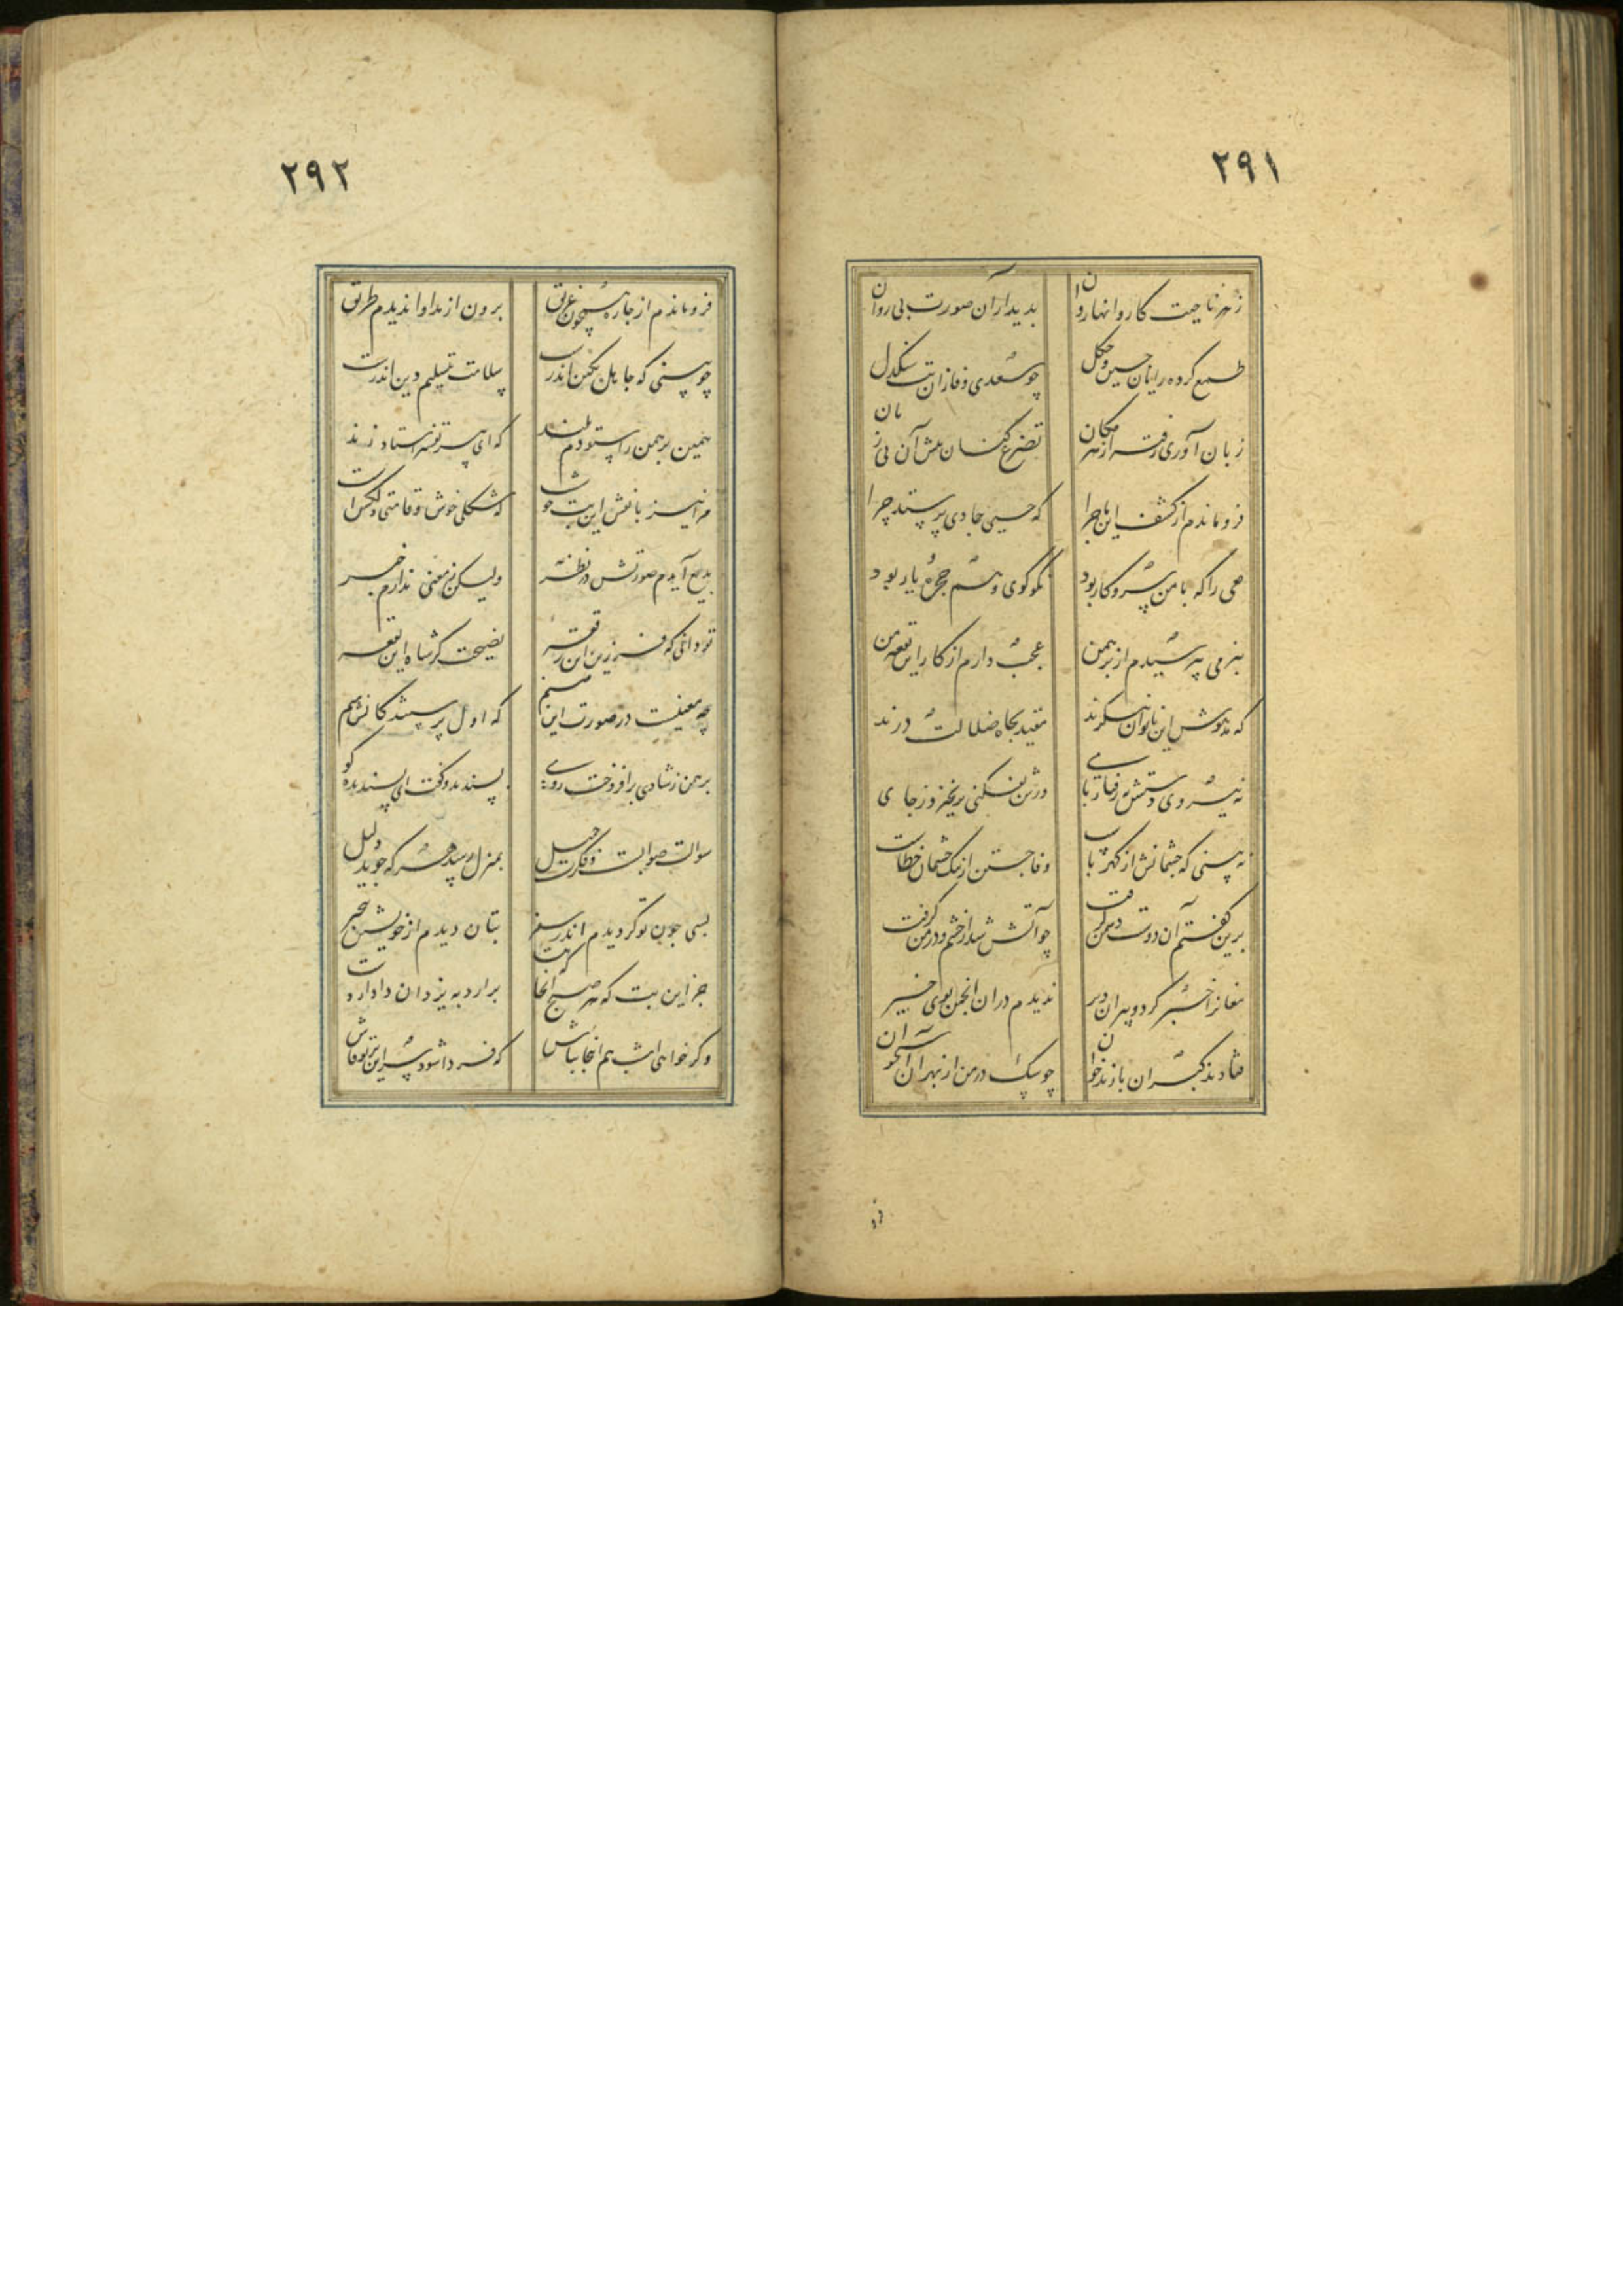 ۲۹۱
ز هر ناحیت کاروانها روان بدیدار آن صورت بی روان
طمع کرده رایان چین و چگل چو سعدی وفا زان بت سنگدل
زبان آوری رفته از هر مکان تضرع کنان پیش آن بی زبان
فرو ماندم از کشف این ماجرا که حیی جمادی پرستد چرا
مغی را که با من سر و کار بود نکو گوی و هم حجره یار بود
بنرمی بپرسیدم از برهمن عجب دارم از کار این بقعه من
که مدهوش این ناتوان پیکرند مقید بچاه ضلالت درند
نه نیروی دستش نه رفتار پای ورش بفکنی بر نخیزد ز جای
نه بینی که چشمانش از کهرباست وفا جستن از سنگ چشمان خطاست
برین گفتم آن دوست دشمن گرفت چو آتش شد از خشم و در من گرفت
مغانرا خبر کرد و پیران دیر ندیدم در آن انجمن روی خیر
فتادند گبران پازند خوان چو سگ در من از بهر آن استخوان
فرو
۲۹۲
فرو ماندم از چاره همچون غریق برون از مدارا ندیدم طریق
چو بینی که جاهل بکین اندرست سلامت بتسلیم دین اندرست
مهین برهمن را ستودم بلند که ای پیر تفسیر استا و زند
مرا نیز با نقش این بت خوشست که شکلی خوش و قامتی دلکش است
بدیع آیدم صورتش در نظر ولیکن ز معنی ندارم خبر
تو دانی که فرزین این رقعه نصیحت گر شاه این بقعه
چه معنیست در صورت این صنم که اول پرستندگانش منم
برهمن ز شادی برافروخت روی پسندید و گفت ای پسندیده گوی
سوالت صوابست و فکرت جمیل بمنزل رسد هر که جوید دلیل
بسی چون تو گردیدم اندر سفر بتان دیدم از خویشتن بیخبر
جز این بت که هر صبح از آنجا که هست برارد به یزدان دادار دست
وگر خواهی امشب هم اینجا بباش که فردا شود سر این بر تو فاش